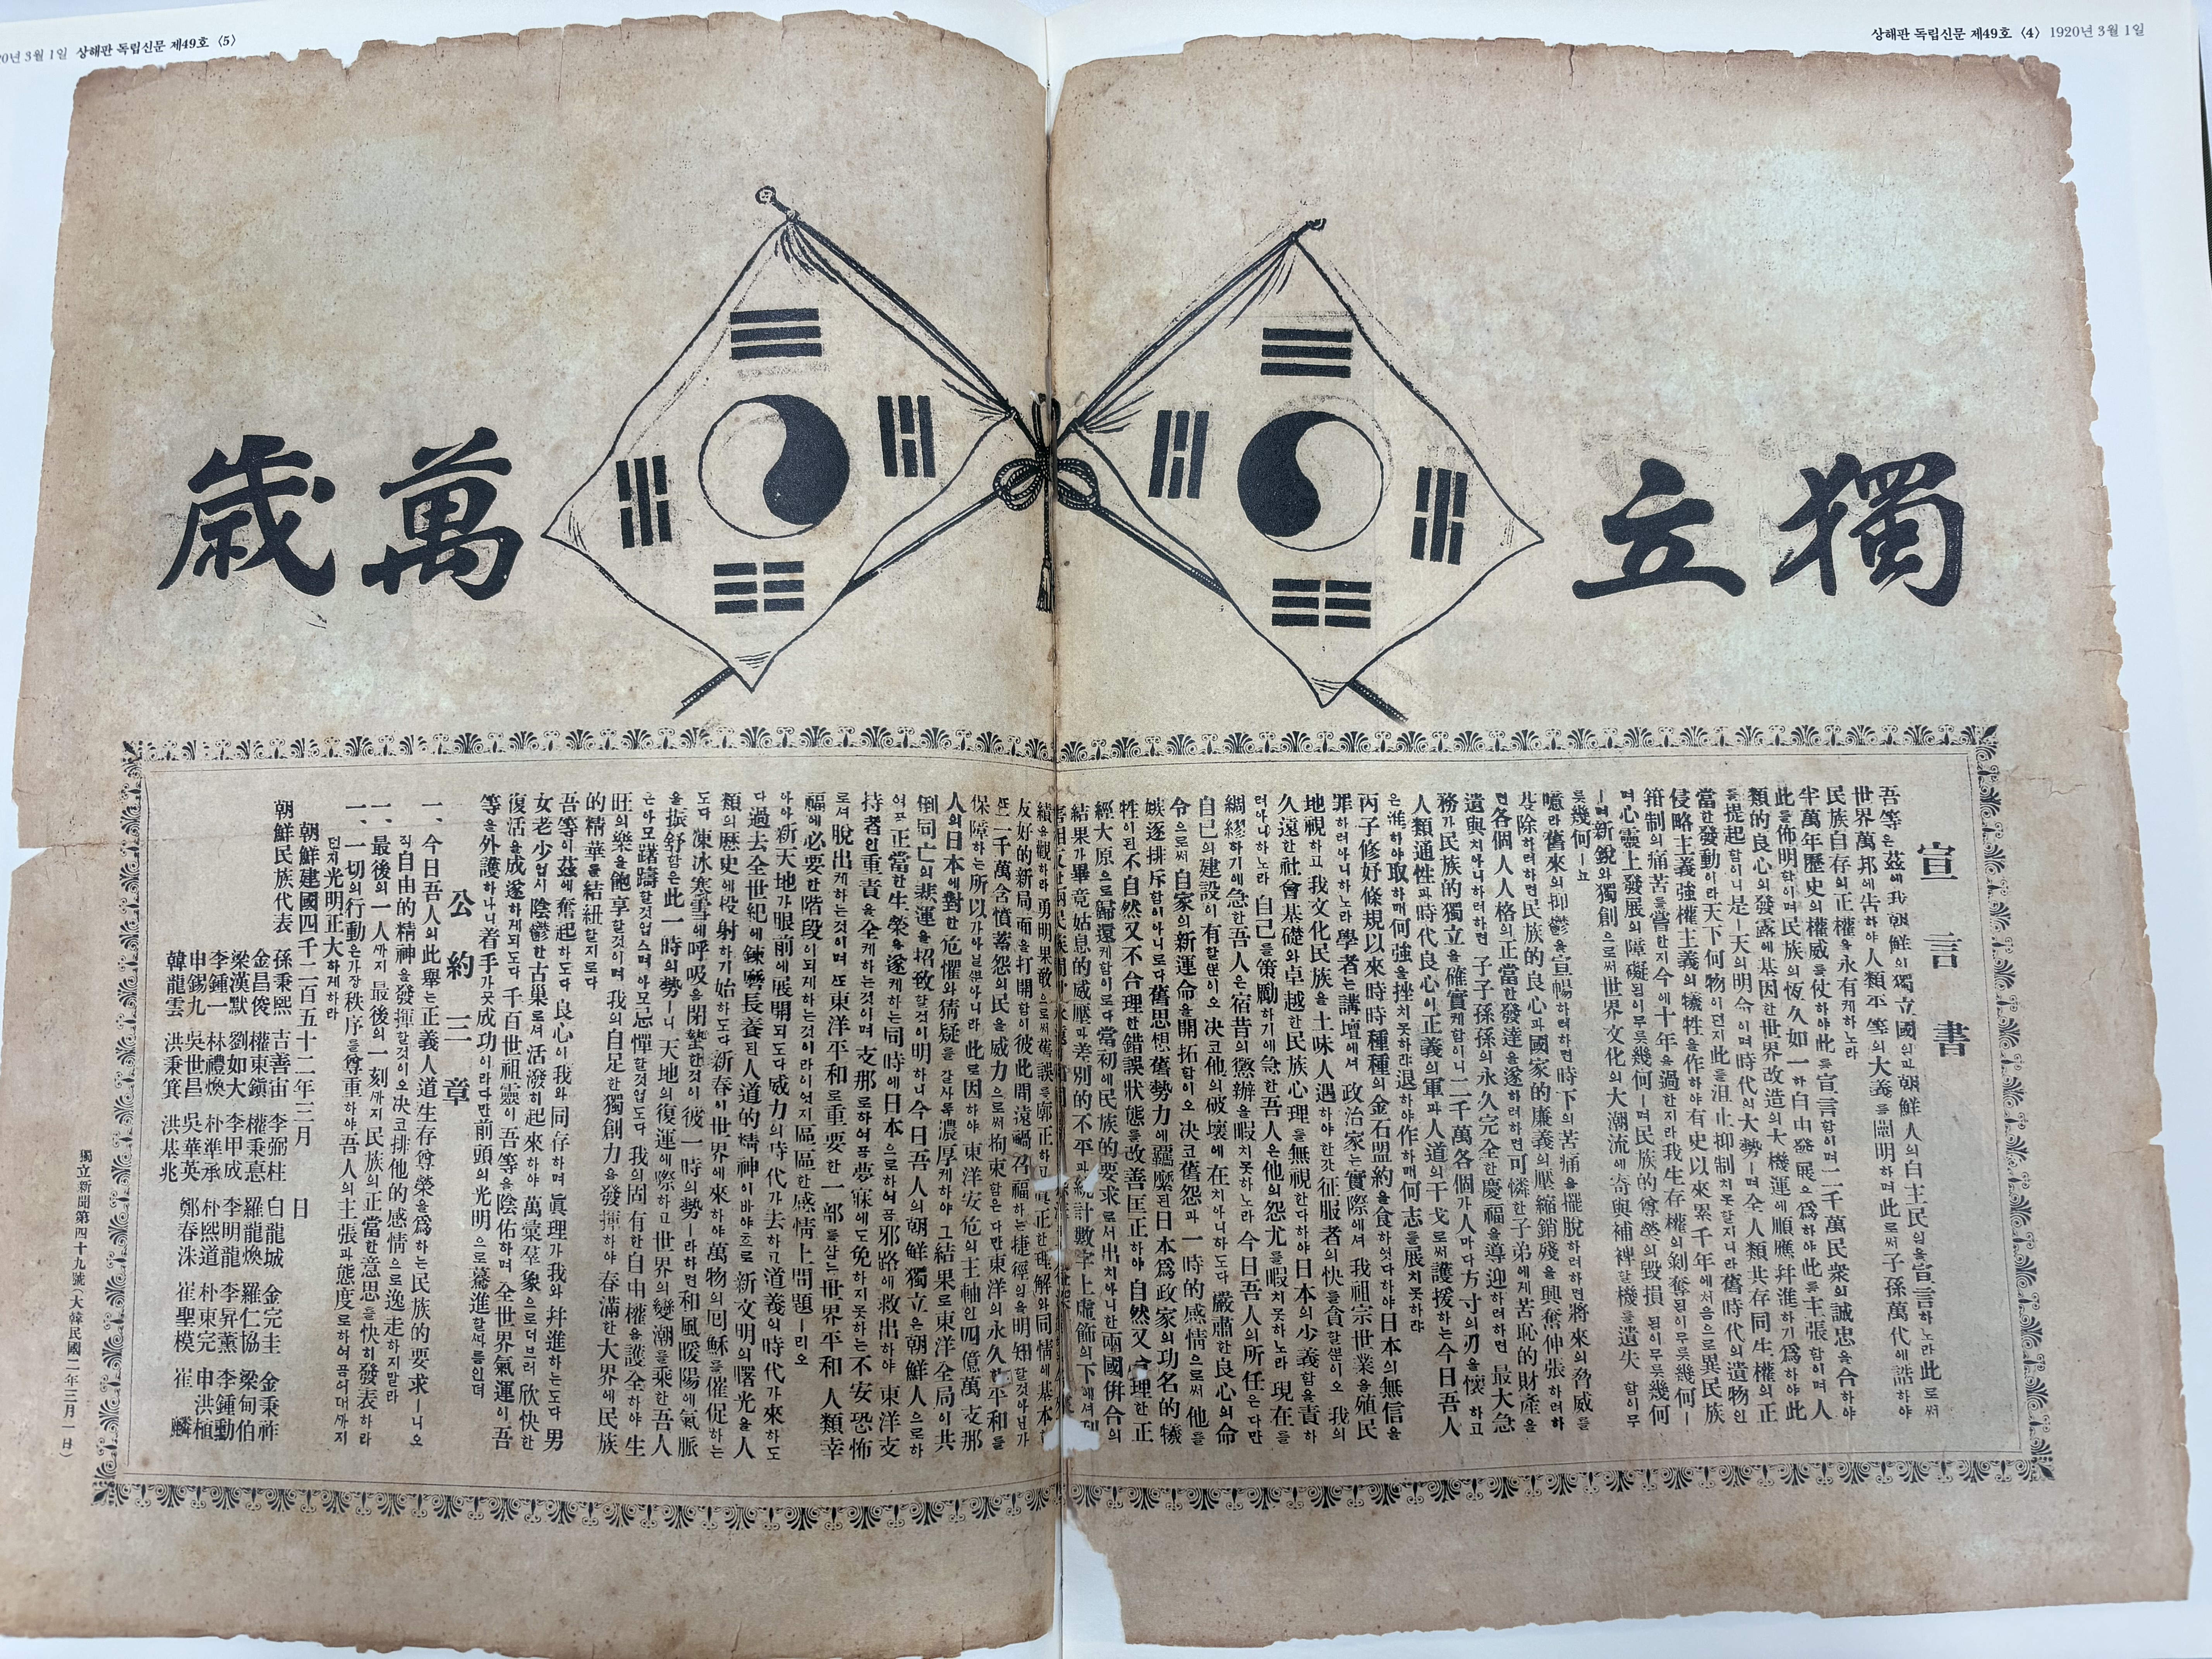 상해판 독립신문 제49호 〈4〉 1920년 3월 1일
20년 3월 1일 상해판 독립신문 제49호 〈5〉
獨立
萬歲
宣言書
吾等은玆에我朝鮮의獨立國임과朝鮮人의自主民임을宣言하노라此로써
世界萬邦에告하야人類平等의大義를闡明하며此로써子孫萬代에誥하야
民族自存의正權을永有케하노라
半萬年歷史의權威를仗하야此를宣言함이며二千萬民衆의誠忠을合하야
此를佈明함이며民族의恆久如一한自由發展을爲하야此를主張함이며人
類的良心의發露에基因한世界改造의大機運에順應幷進하기爲하야此
를提起함이니是ㅣ天의明命이며時代의大勢ㅣ며全人類共存同生權의正
當한發動이라天下何物이던지此를沮止抑制치못할지니라舊時代의遺物인
侵略主義強權主義의犧牲을作하야有史以來累千年에처음으로異民族
箝制의痛苦를嘗한지今에十年을過한지라我生存權의剝奪됨이무릇幾何ㅣ
며心靈上發展의障礙됨이무릇幾何ㅣ며民族的尊榮의毀損됨이무릇幾何
ㅣ며新銳와獨創으로써世界文化의大潮流에奇與補裨할機를遺失함이무
릇幾何ㅣ뇨
噫라舊來의抑鬱을宣暢하려하면時下의苦痛을擺脫하려하면將來의脅威를
芟除하려하면民族的良心과國家的廉義의壓縮銷殘을興奮伸張하려하
면各個人人格의正當한發達을遂하려하면可憐한子弟에게苦恥的財産을
遺與치아니하려하면子子孫孫의永久完全한慶福을導迎하려하면最大急
務가民族的獨立을確實케함이니二千萬各個가人마다方寸의刃을懷하고
人類通性과時代良心이正義의軍과人道의干戈로써護援하는今日吾人
은進하야取하매何強을挫치못하랴退하야作하매何志를展치못하랴
丙子修好條規以來時時種種의金石盟約을食하엿다하야日本의無信을
罪하려아니하노라學者는講壇에셔政治家는實際에셔我祖宗世業을殖民
地視하고我文化民族을土昧人遇하야한갓征服者의快를貪할뿐이오我의
久遠한社會基礎와卓越한民族心理를無視한다하야日本의少義함을責하
려아니하노라自己를策勵하기에急한吾人은他의怨尤를暇치못하노라現在를
綢繆하기에急한吾人은宿昔의懲辦을暇치못하노라今日吾人의所任은다만
自己의建設이有할뿐이오決코他의破壞에在치아니하도다嚴肅한良心의命
令으로써自家의新運命을開拓함이오決코舊怨과一時的感情으로써他를
嫉逐排斥함이아니로다舊思想舊勢力에羈縻된日本爲政家의功名的犧
牲이된不自然又不合理한錯誤狀態를改善匡正하야自然又合理한正
經大原으로歸還케함이로다當初에民族的要求로셔出치아니한兩國倂合의
結果가畢竟姑息的威壓과差別的不平과統計數字上虛飾의下에셔利
害相反한兩民族間에永遠
績을觀하라勇明果敢으로써舊誤를廓正하고眞正한理解와同情에基本
友好的新局面을打開함이彼此間遠禍召福하는捷徑임을明知할것아닌가
또二千萬含憤蓄怨의民을威力으로써拘束함은다만東洋의永久한平和를
保障하는所以가아닐뿐아니라此로因하야東洋安危의主軸인四億萬支那
人의日本에對한危懼와猜疑를갈사록濃厚케하야그結果로東洋全局이共
倒同亡의悲運을招致할것이明하니今日吾人의朝鮮獨立은朝鮮人으로하
여곰正當한生榮을遂케하는同時에日本으로하여곰邪路에救出하야東洋支
持者인重責을全케하는것이며支那로하여곰夢寐에도免하지못하는不安恐怖
로셔脫出케하는것이며또東洋平和로重要한一部를삼는世界平和人類幸
福에必要한階段이되게하는것이라이엇지區區한感情上問題ㅣ리오
아아新天地가眼前에展開되도다威力의時代가去하고道義의時代가來하도
다過去全世紀에鍊磨長養된人道的精神이바야흐로新文明의曙光을人
類의歷史에投射하기始하도다新春이世界에來하야萬物의回穌를催促하는
도다凍氷寒雪에呼吸을閉蟄한것이彼一時의勢ㅣ라하면和風暖陽에氣脈
을振舒함은此一時의勢ㅣ니天地의復運에際하고世界의變潮를乘한吾人
은아모躊躇할것업스며아모忌憚할것업도다我의固有한自由權을護全하야生
旺의樂을飽享할것이며我의自足한獨創力을發揮하야春滿한大界에民族
的精華를結紐할지로다
吾等이玆에奮起하도다良心이我와同存하며眞理가我와幷進하는도다男
女老少업시陰鬱한古巢로셔活潑히起來하야萬彙羣象으로더브러欣快한
復活을成遂하게되도다千百世祖靈이吾等을陰佑하며全世界氣運이吾
等을外護하나니着手가곳成功이라다만前頭의光明으로驀進할따름인뎌
公約三章
一、今日吾人의此擧는正義人道生存尊榮을爲하는民族的要求ㅣ니오
직自由的精神을發揮할것이오決코排他的感情으로逸走하지말라
一、最後의一人까지最後의一刻까지民族의正當한意思를快히發表하라
一、一切의行動은가장秩序를尊重하야吾人의主張과態度로하여곰어대까지
던지光明正大하게하라
朝鮮建國四千二百五十二年三月 日
朝鮮民族代表
孫秉熙 吉善宙 李弼柱 白龍城 金完圭 金秉祚
金昌俊 權東鎭 權秉悳 羅龍煥 羅仁協 梁甸伯
梁漢默 劉如大 李甲成 李明龍 李昇薰 李鍾勳
李鍾一 林禮煥 朴準承 朴熙道 朴東完 申洪植
申錫九 吳世昌 吳華英 鄭春洙 崔聖模 崔麟
韓龍雲 洪秉箕 洪基兆
獨立新聞第四十九號(大韓民國二年三月一日)